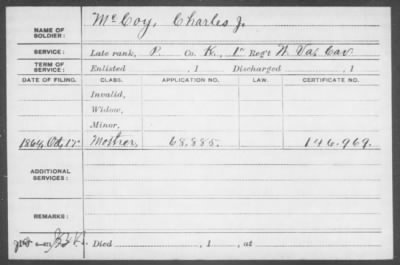 NAME OF SOLDIER: McCoy, Charles J.
SERVICE: Late rank, P. Co. K, 1" Reg't W. Va. Cav.
TERM OF SERVICE: Enlisted , 1 Discharged , 1
DATE OF FILING. CLASS. APPLICATION NO. LAW. CERTIFICATE NO.
Invalid,
Widow,
Minor,
1864, Oct, 17. Mother, 68.885. 146.969.
ADDITIONAL SERVICES:
REMARKS:
Died , 1 , at